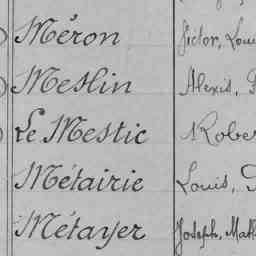 Méron Victor, Loui
Meslin Alexis,
Le Mestic Rober
Métairie Louis,
Métayer Joseph, Math